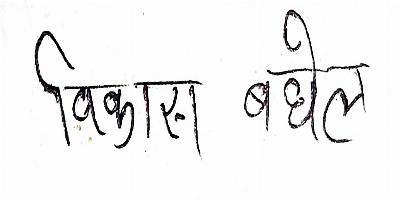 विकास बघेल